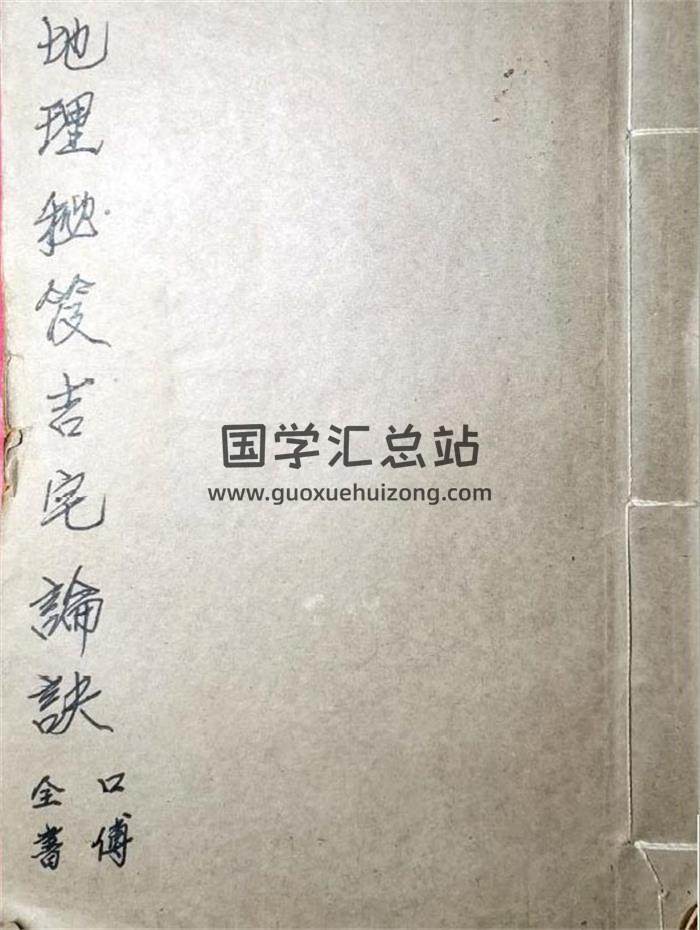 地理秘笈吉宅論訣
口傅
全書
国学汇总站
www.guoxuehuizong.com